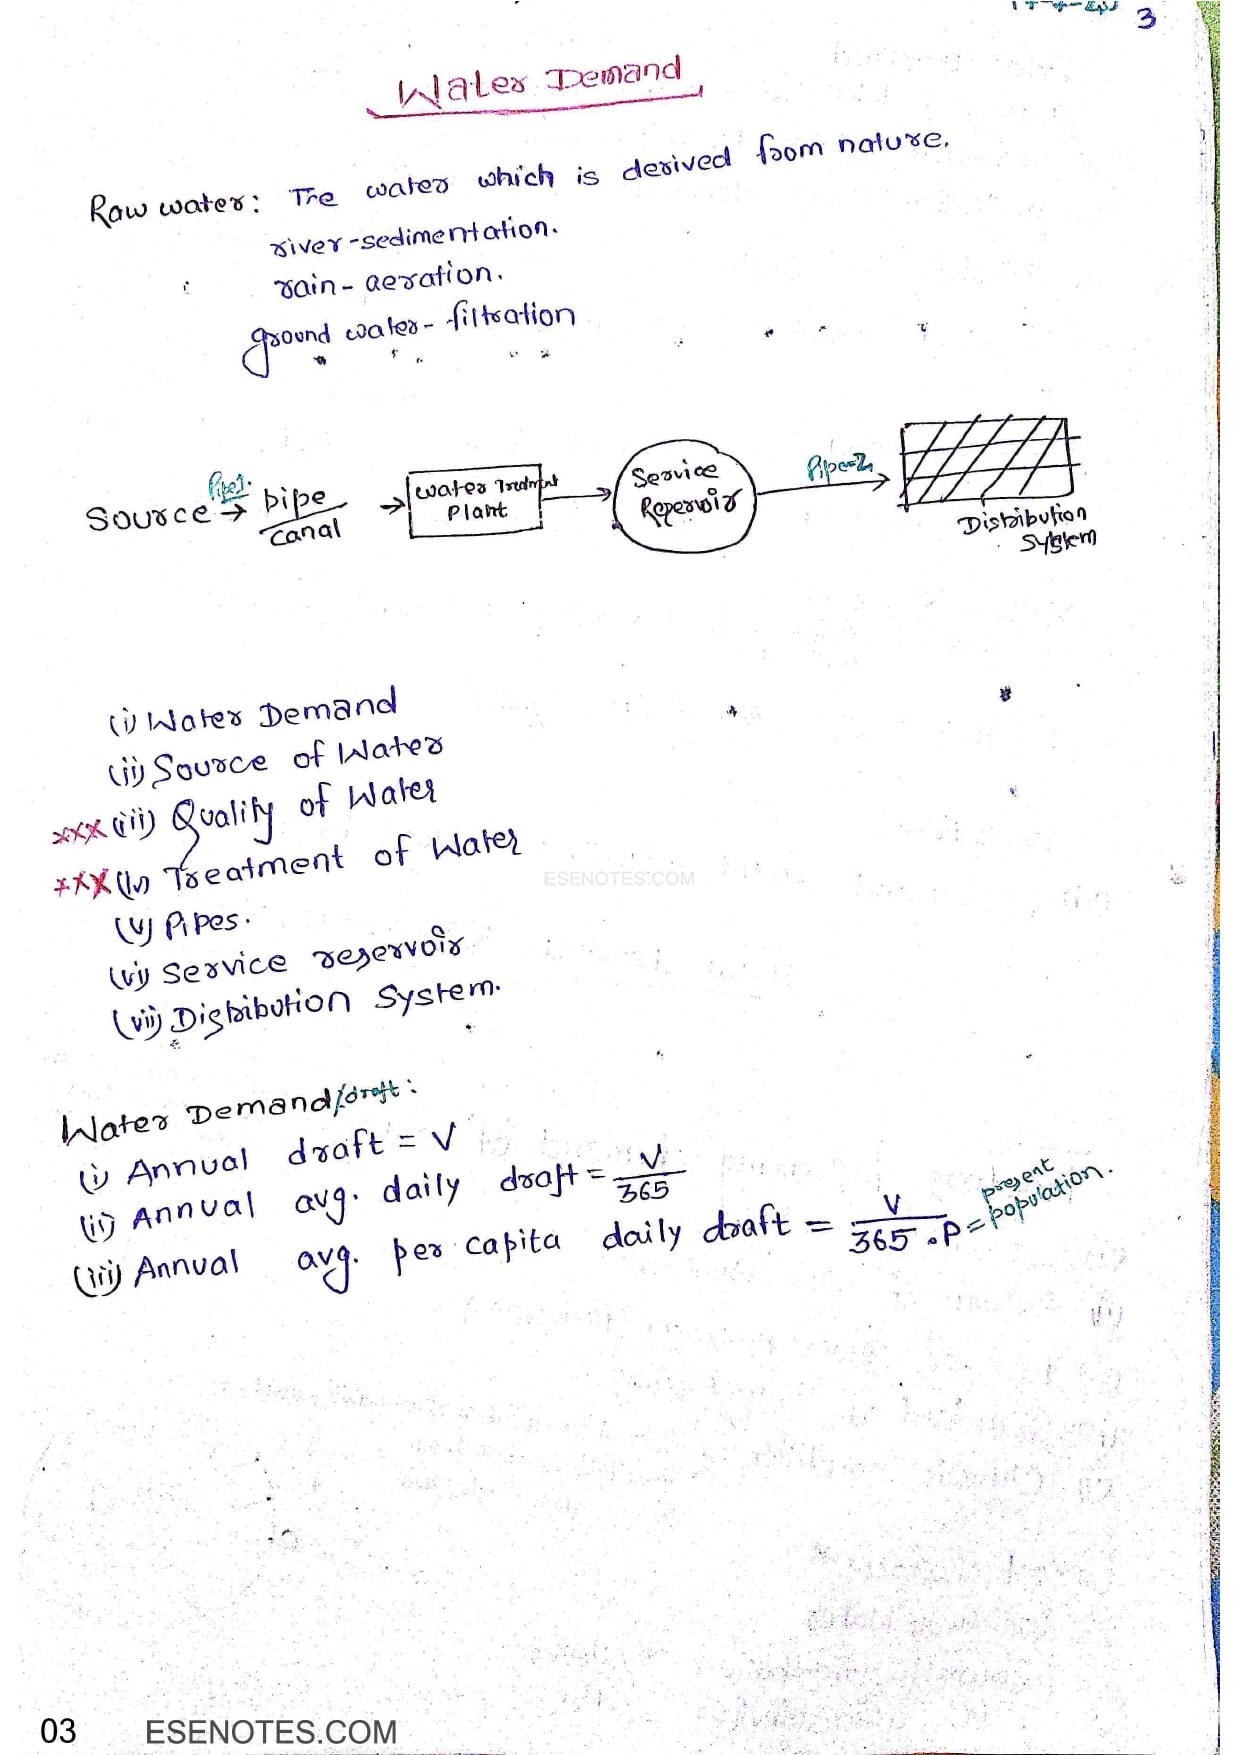 3
Water Demand
Raw water: The water which is derived from nature.
river-sedimentation.
rain - aeration.
ground water - filtration
Source → Pipe1. pipe/canal → Water Tredment Plant → Service Reservoir Pipe-2 → Distribution System
(i) Water Demand
(ii) Source of Water
xxx (iii) Quality of Water
xxx (iv) Treatment of Water
ESENOTES.COM
(v) Pipes.
(vi) Service reservoir
(vii) Distribution System.
Water Demand/draft:
(i) Annual draft = V
(ii) Annual avg. daily draft = V/365
(iii) Annual avg. per capita daily draft = V/365.P = present population.
03 ESENOTES.COM